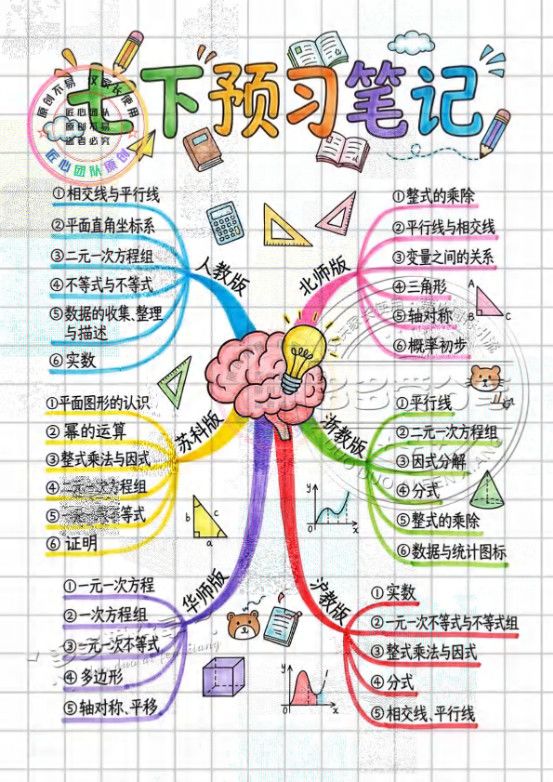 七下预习笔记
原创不易 仅家长使用
匠心团队
原创不易
盗者必究
匠心团队原创
人教版
①相交线与平行线
②平面直角坐标系
③二元一次方程组
④不等式与不等式
⑤数据的收集、整理
与描述
⑥实数
北师版
①整式的乘除
②平行线与相交线
③变量之间的关系
④三角形
⑤轴对称
⑥概率初步
A
B
C
苏科版
①平面图形的认识
②幂的运算
③整式乘法与因式
④二元一次方程组
⑤一元一次不等式
⑥证明
b
c
a
浙教版
①平行线
②二元一次方程组
③因式分解
④分式
⑤整式的乘除
⑥数据与统计图标
y
x
华师版
①一元一次方程
②一次方程组
③一元一次不等式
④多边形
⑤轴对称、平移
沪教版
①实数
②一元一次不等式与不等式组
③整式乘法与因式
④分式
⑤相交线、平行线
y
x